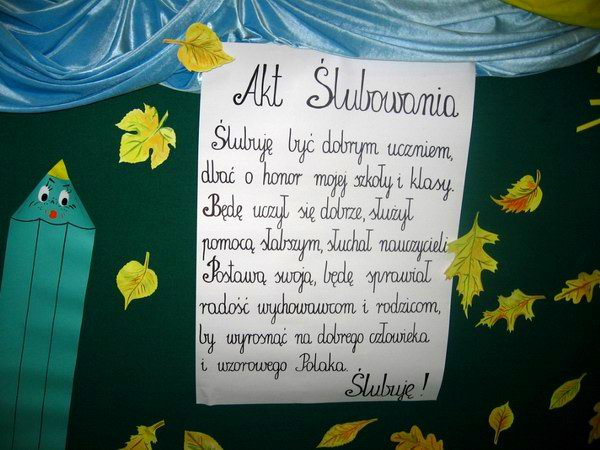 Akt Ślubowania
Ślubuję być dobrym uczniem,
dbać o honor mojej szkoły i klasy.
Będę uczył się dobrze, służył
pomocą słabszym, słuchał nauczycieli.
Postawą swoją, będę sprawiał
radość wychowawcom i rodzicom,
by wyrosnąć na dobrego człowieka
i wzorowego Polaka.
Ślubuję !